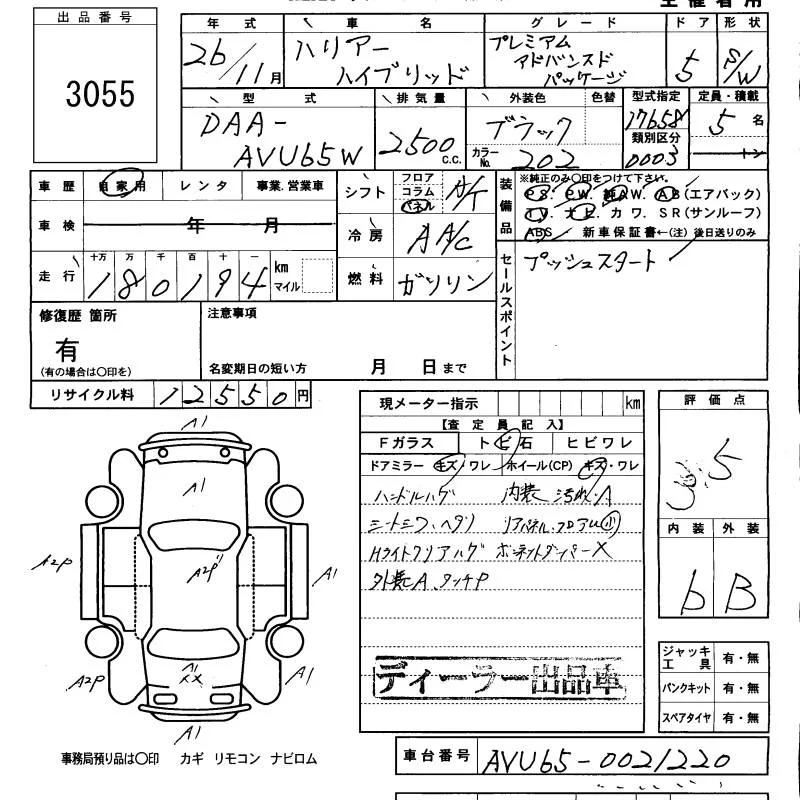 出品番号
3055
年式 車名 グレード ドア 形状
26/11月 ハリアーハイブリッド プレミアムアドバンスドパッケージ 5 S/W
型式 排気量 外装色 色替 型式指定 定員・積載
DAA-AVU65W 2500c.c. ブラック 17658 5名
カラーNo. 202 類別区分 0003 トン
車歴 自家用 レンタ 事業.営業車
シフト フロア コラム パネル A/T
装備品 ※純正のみ〇印をつけて下さい。
PS. PW. 純AW. AB(エアバック)
TV. ナビ. カワ. SR(サンルーフ)
ABS 新車保証書←(注)後日送りのみ
車検 年 月
冷房 AA/C
走行 十万 万 千 百 十 一
180194 km マイル
燃料 ガソリン
セールスポイント プッシュスタート
修復歴 箇所
有
(有の場合は〇印を)
注意事項
名変期日の短い方 月 日まで
リサイクル料 12550円
現メーター指示 km
評価点
3.5
【査定員記入】
Fガラス トビ石 ヒビワレ
ドアミラー キズ/ワレ ホイール(CP) キズ・ワレ
ハンドルハゲ 内装 汚れ・A
シートシワ、ヘタリ リアパネル、フロアU小
Hライトクリアハゲ ボンネットダンパーX
外装A、タッチP
内装 外装
b B
A1
A1
A2P
A2P
A1
A1
XX
A2P
A1
A1
ディーラー出品車
ジャッキ工具 有・無
パンクキット 有・無
スペアタイヤ 有・無
事務局預り品は〇印 カギ リモコン ナビロム
車台番号 AVU65-0021220